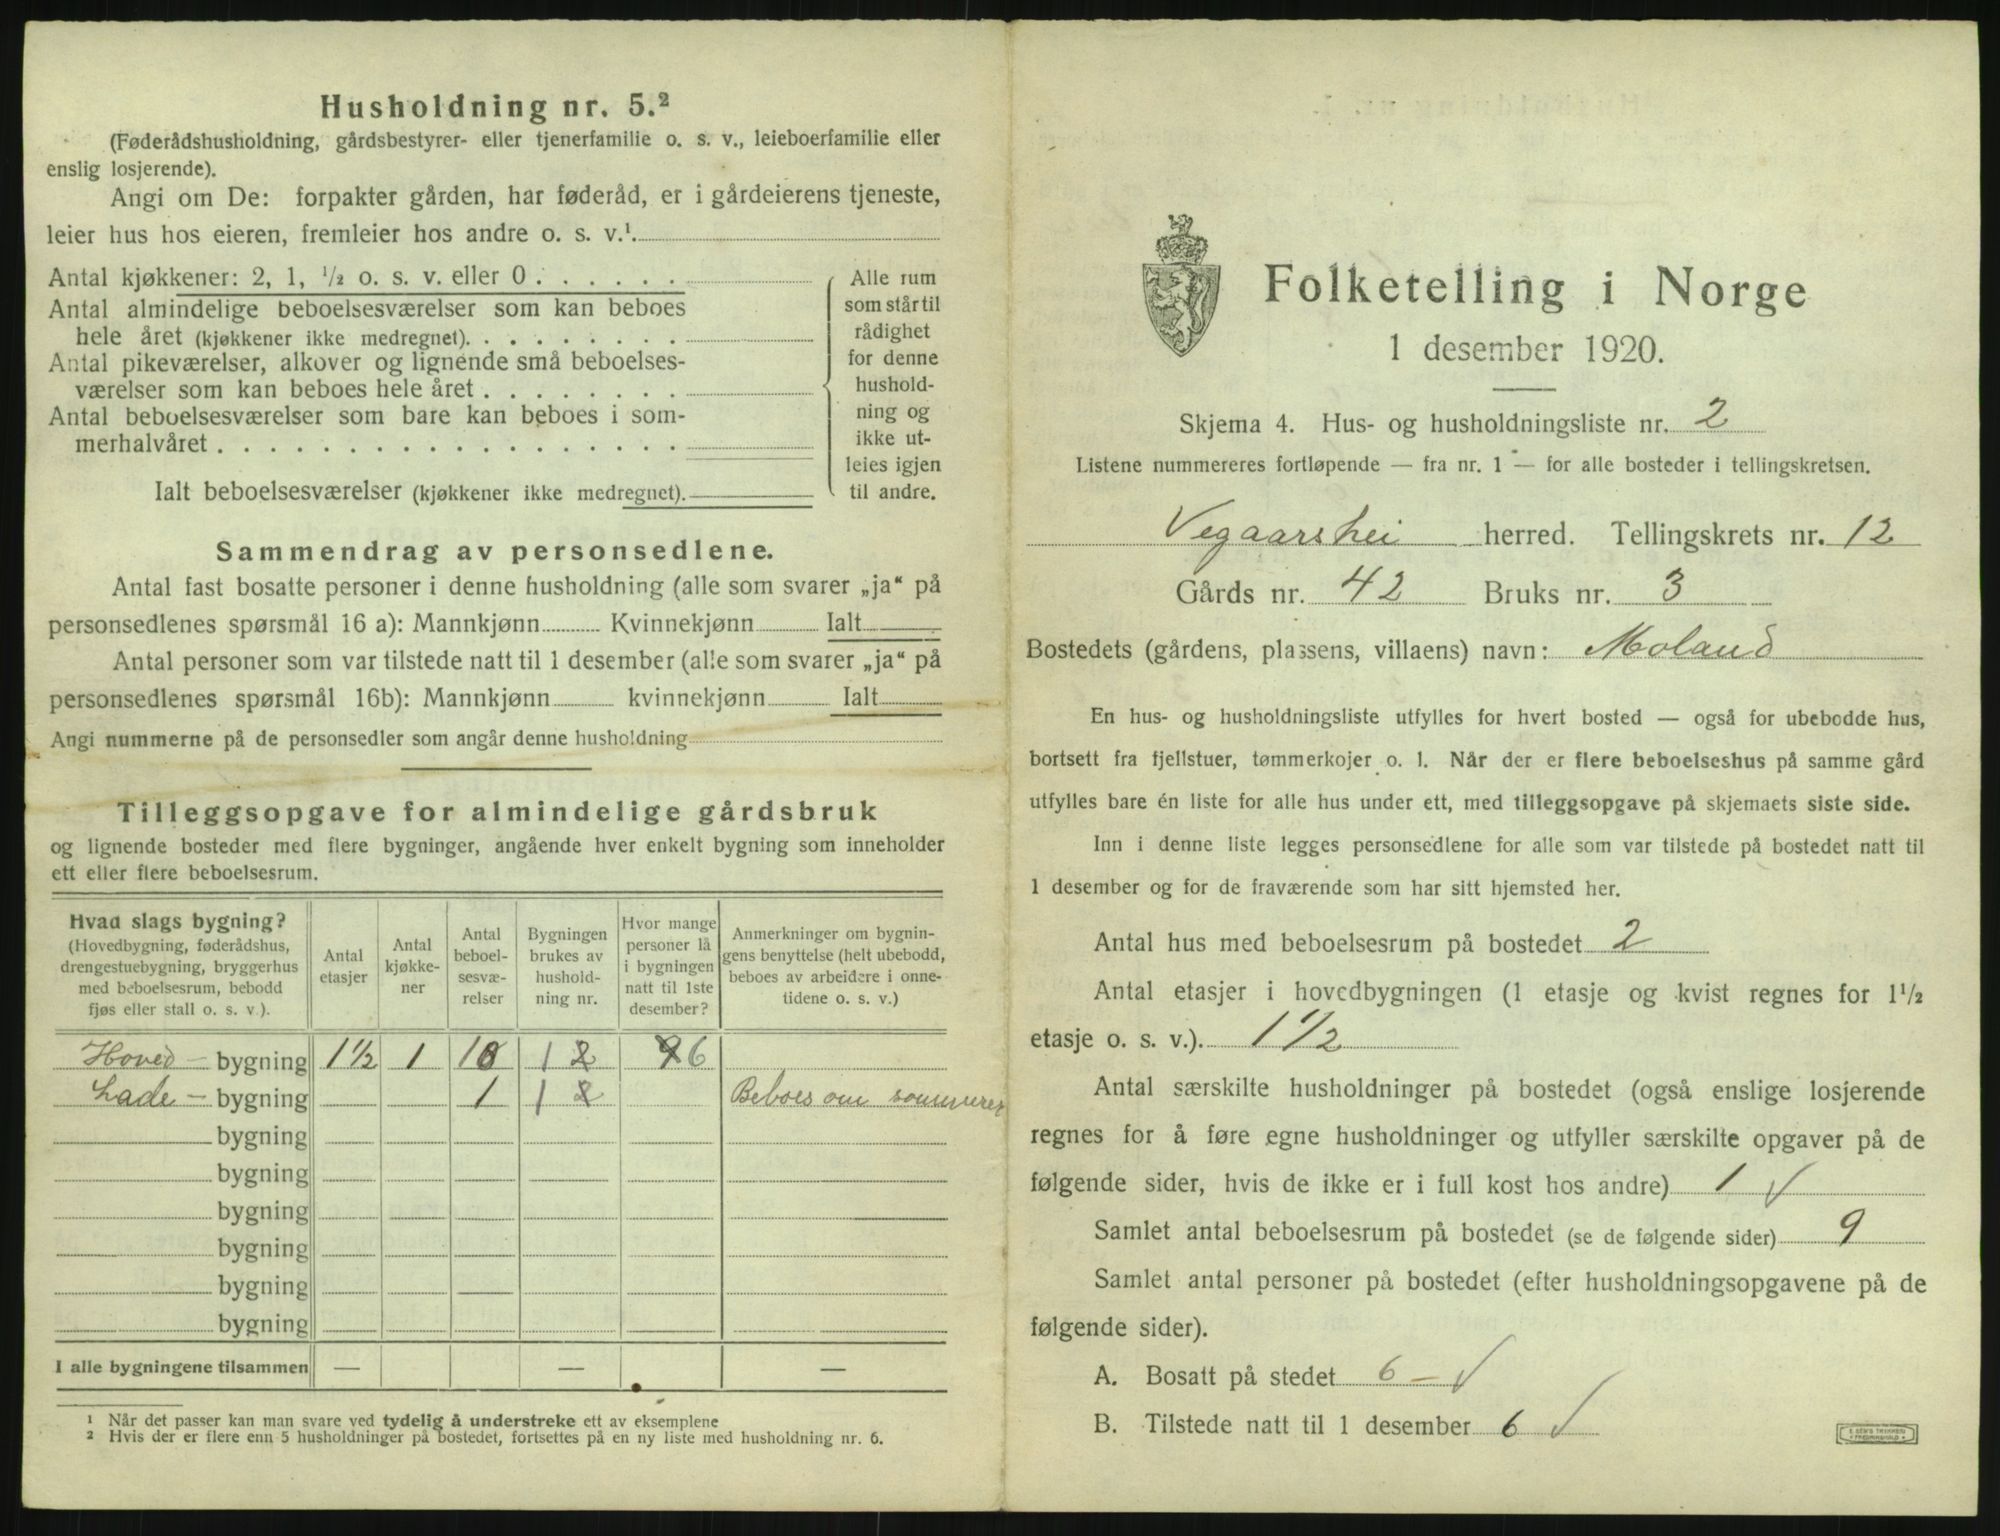 Husholdning nr. 5.²
(Føderådshusholdning, gårdsbestyrer- eller tjenerfamilie o. s. v., leieboerfamilie eller
enslig losjerende).
Angi om De: forpakter gården, har føderåd, er i gårdeierens tjeneste,
leier hus hos eieren, fremleier hos andre o. s. v.¹
Antal kjøkkener: 2, 1, ½ o. s. v. eller 0
Antal almindelige beboelsesværelser som kan beboes
hele året (kjøkkener ikke medregnet).
Antal pikeværelser, alkover og lignende små beboelses-
værelser som kan beboes hele året
Antal beboelsesværelser som bare kan beboes i som-
merhalvåret
Ialt beboelsesværelser (kjøkkener ikke medregnet).
Alle rum
som står til
rådighet
for denne
hushold-
ning og
ikke ut-
leies igjen
til andre.
Sammendrag av personsedlene.
Antal fast bosatte personer i denne husholdning (alle som svarer „ja“ på
personsedlenes spørsmål 16 a): Mannkjønn Kvinnekjønn Ialt
Antal personer som var tilstede natt til 1 desember (alle som svarer „ja“ på
personsedlenes spørsmål 16b): Mannkjønn kvinnekjønn Ialt
Angi nummerne på de personsedler som angår denne husholdning
Tilleggsopgave for almindelige gårdsbruk
og lignende bosteder med flere bygninger, angående hver enkelt bygning som inneholder
ett eller flere beboelsesrum.
Hvad slags bygning?
(Hovedbygning, føderådshus,
drengestuebygning, bryggerhus
med beboelsesrum, bebodd
fjøs eller stall o. s. v.).
Antal
etasjer
Antal
kjøkke-
ner
Antal
beboel-
sesvæ-
relser
Bygningen
brukes av
hushold-
ning nr.
Hvor mange
personer lå
i bygningen
natt til 1ste
desember?
Anmerkninger om bygnin-
gens benyttelse (helt ubebodd,
beboes av arbeidere i onne-
tidene o. s. v.)
Hoved- bygning 1½ 1 1 2 6
Lade- bygning 1 1 2 Beboes om sommeren
bygning
bygning
bygning
bygning
bygning
bygning
I alle bygningene tilsammen — — —
¹ Når det passer kan man svare ved tydelig å understreke ett av eksemplene
² Hvis der er flere enn 5 husholdninger på bostedet, fortsettes på en ny liste med husholdning nr. 6.
Folketelling i Norge
1 desember 1920.
Skjema 4. Hus- og husholdningsliste nr. 2
Listene nummereres fortløpende — fra nr. 1 — for alle bosteder i tellingskretsen.
Vegaarshei herred. Tellingskrets nr. 12
Gårds nr. 42 Bruks nr. 3
Bostedets (gårdens, plassens, villaens) navn: Moland
En hus- og husholdningsliste utfylles for hvert bosted — også for ubebodde hus,
bortsett fra fjellstuer, tømmerkojer o. l. Når der er flere beboelseshus på samme gård
utfylles bare én liste for alle hus under ett, med tilleggsopgave på skjemaets siste side.
Inn i denne liste legges personsedlene for alle som var tilstede på bostedet natt til
1 desember og for de fraværende som har sitt hjemsted her.
Antal hus med beboelsesrum på bostedet 2
Antal etasjer i hovedbygningen (1 etasje og kvist regnes for 1½
etasje o. s. v.). 1½
Antal særskilte husholdninger på bostedet (også enslige losjerende
regnes for å føre egne husholdninger og utfyller særskilte opgaver på de
følgende sider, hvis de ikke er i full kost hos andre) 1 √
Samlet antal beboelsesrum på bostedet (se de følgende sider) 9
Samlet antal personer på bostedet (efter husholdningsopgavene på de
følgende sider).
A. Bosatt på stedet 6 – √
B. Tilstede natt til 1 desember 6 √